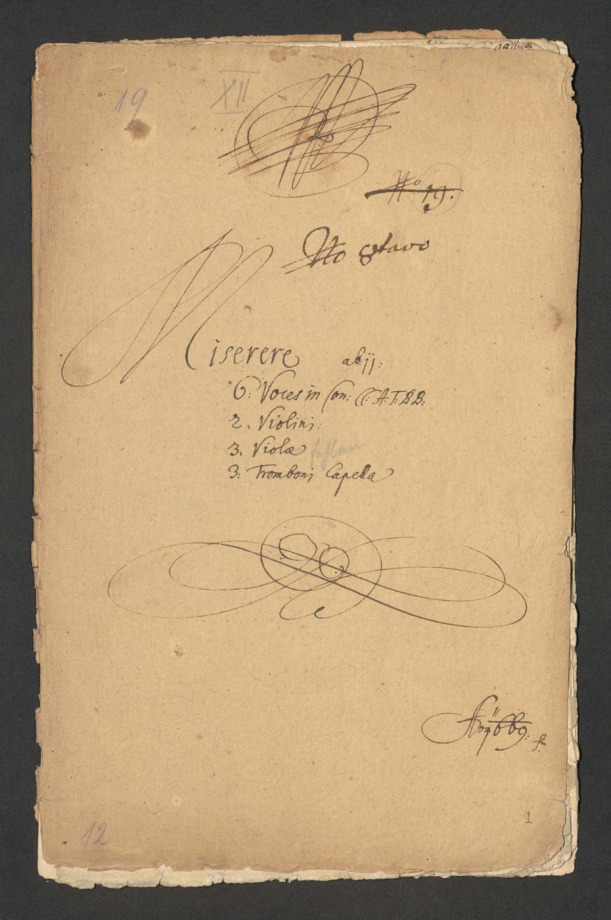 19 XII
No 19.
No octavo
Miserere abjj:
6: Voces in Con: CC: A: T: B B:
2. Violini:
3. Violæ
3: Tromboni Capella
12
1